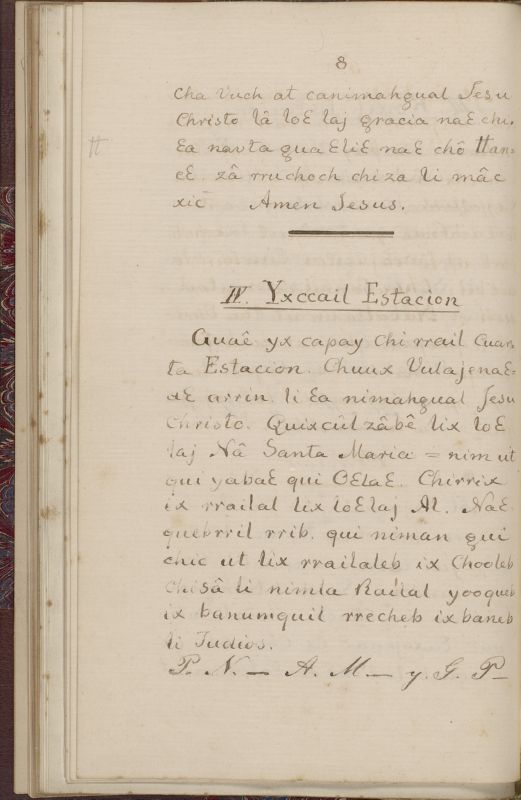 8
cha Vuch at canimahgual Jesu
Christo lâ loƐ laj gracia naƐ chi.
Ɛa navta qua ƐliƐ naƐ chô ttan=
cƐ. zâ rruchoch chiza li mâc
xic Amen Jesus.
IV. Yxccail Estacion
Guaê yx capay chi rrail Cuar=
ta Estacion. Chuux VulajenaƐ=
aƐ arrin. li Ɛa nimahgual Jesu
Christo. Quixcûl zâbê lix loƐ
laj Nâ Santa Maria = nim ut
qui yabaƐ qui OƐlaƐ. Chirrix
ix rrailal lix loƐlaj Al. NaƐ
quebrril rrib. qui niman qui
chic ut lix rrailaleb ix Chooleb
Chisâ li nimla Railal yooqueb
ix banumquil rrecheb ix baneb
li Judios.
P. N. — A. M. — y. G. P —
tt